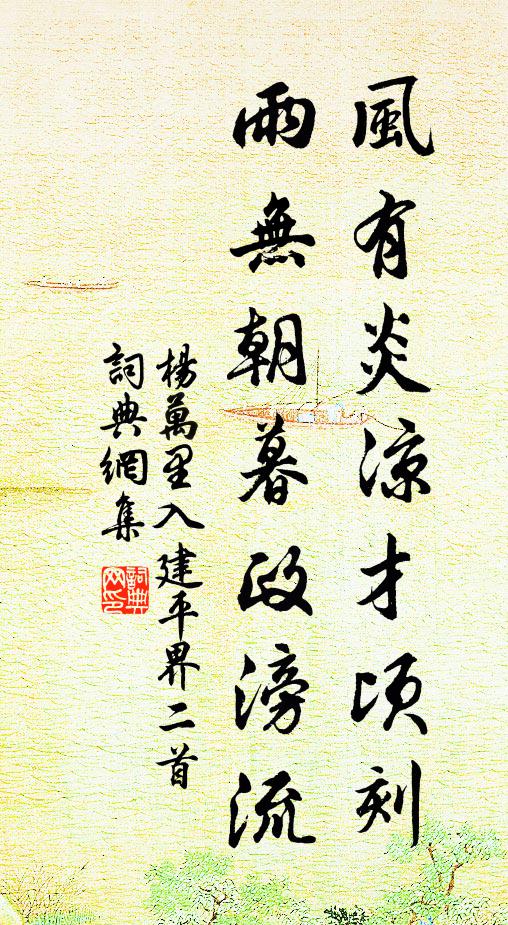 風有炎涼才頃刻
雨無朝暮政滂流
楊萬里入建平界二首
詞典網集
詞典
网印